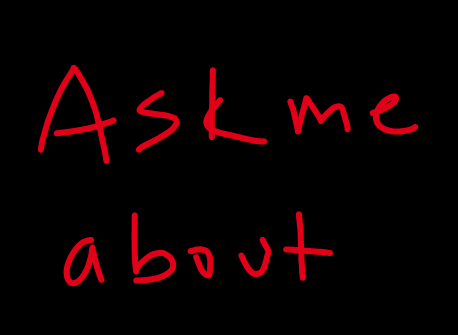 Ask me
about